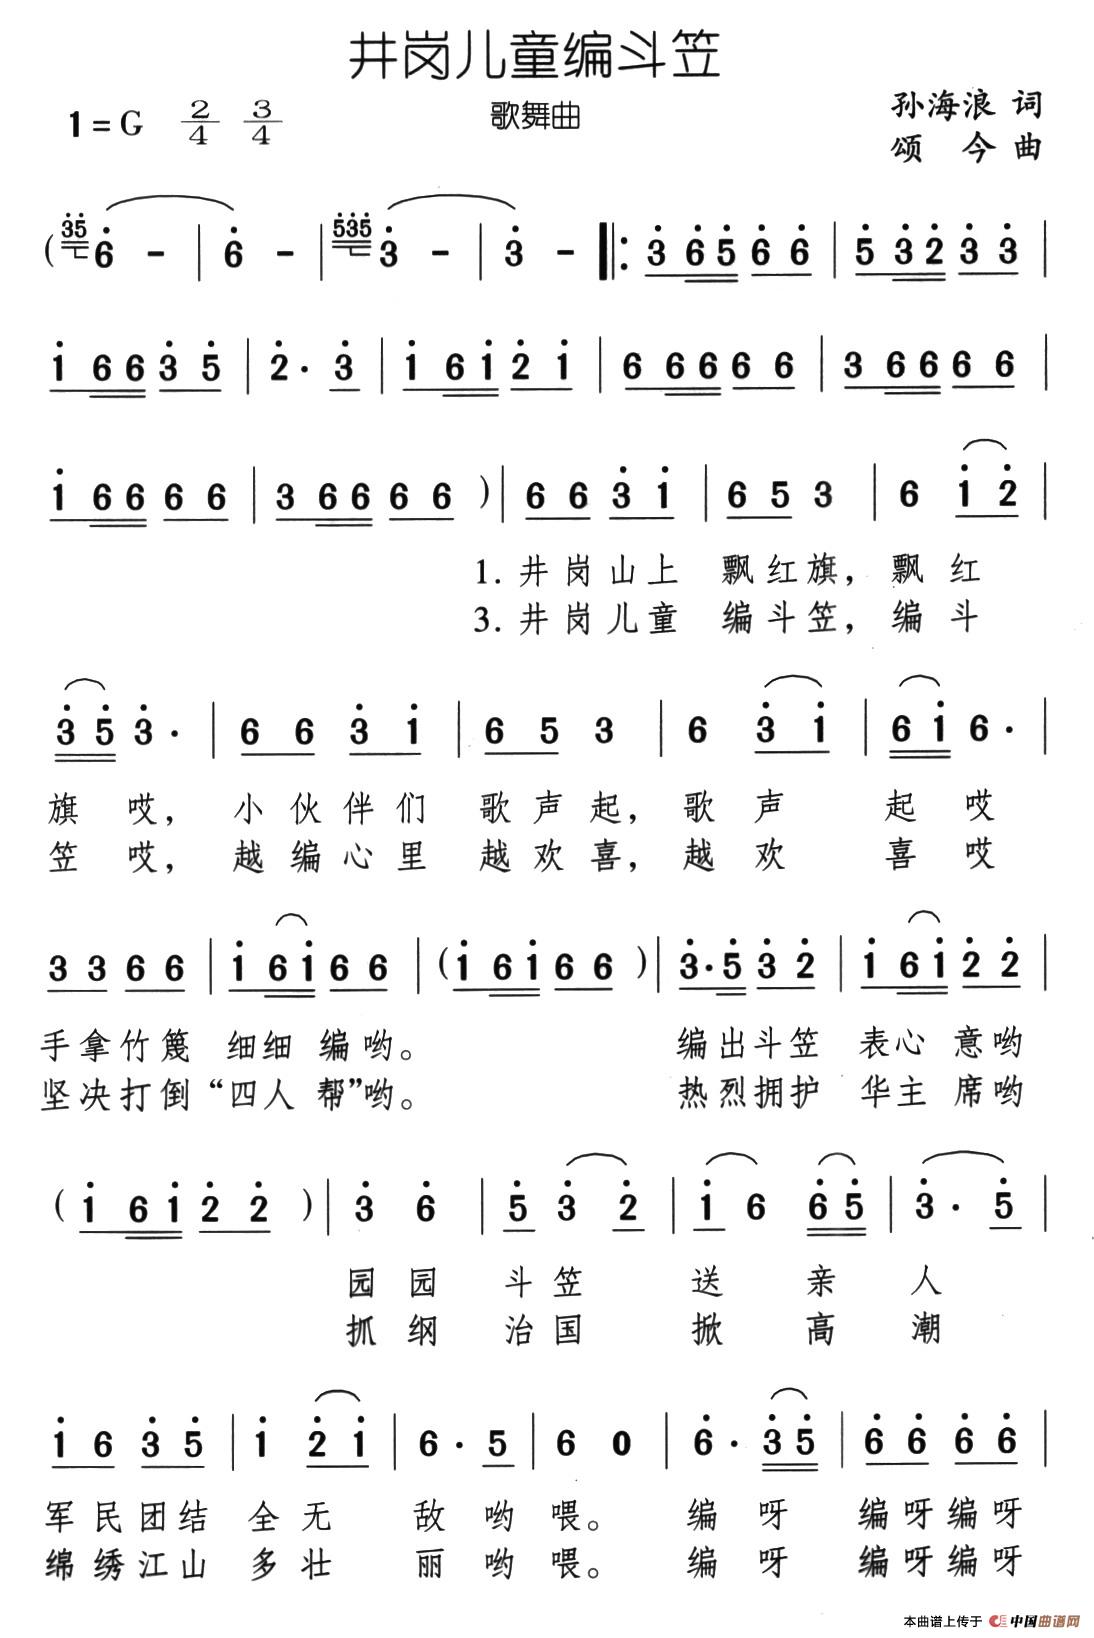 井岗儿童编斗笠
歌舞曲
1=G 2/4 3/4
孙海浪 词
颂 今 曲
( 35 6 - | 6 - | 535 3 - | 3 - |: 3 6 5 6 6 | 5 3 2 3 3 |
1 6 6 3 5 | 2 · 3 | 1 6 1 2 1 | 6 6 6 6 6 | 3 6 6 6 6 |
1 6 6 6 6 | 3 6 6 6 6 ) | 6 6 3 1 | 6 5 3 | 6 1 2 |
1. 井岗山上 飘红旗，飘 红
3. 井岗儿童 编斗笠，编 斗
3 5 3 · | 6 6 3 1 | 6 5 3 | 6 3 1 | 6 1 6 · |
旗 哎，小伙伴们 歌声起，歌声 起 哎
笠 哎，越编心里 越欢喜，越欢 喜 哎
3 3 6 6 | 1 6 1 6 6 | ( 1 6 1 6 6 ) | 3 · 5 3 2 | 1 6 1 2 2 |
手拿竹篾 细细 编哟。 编出斗笠 表心 意哟
坚决打倒 “四人 帮”哟。 热烈拥护 华主 席哟
( 1 6 1 2 2 ) | 3 6 | 5 3 2 | 1 6 6 5 | 3 · 5 |
园园 斗笠 送 亲 人
抓纲 治国 掀 高 潮
1 6 3 5 | 1 2 1 | 6 · 5 | 6 0 | 6 · 3 5 | 6 6 6 6 |
军民团结 全无 敌 哟 喂。 编 呀 编呀编呀
绵绣江山 多壮 丽 哟 喂。 编 呀 编呀编呀
本曲谱上传于 中国曲谱网